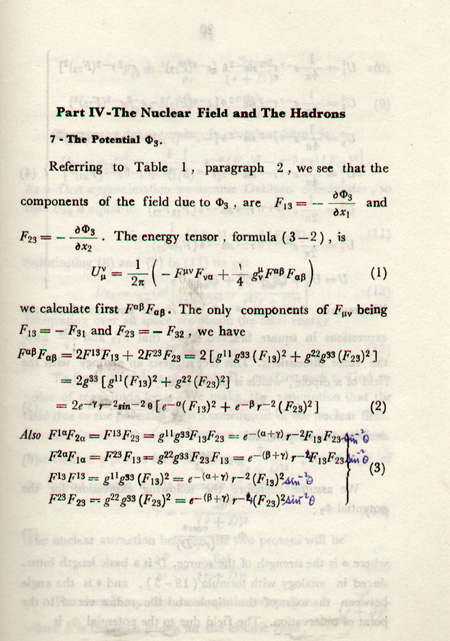 Part IV-The Nuclear Field and The Hadrons
7 - The Potential Φ₃.
Referring to Table 1, paragraph 2, we see that the
components of the field due to Φ₃, are F₁₃ = − ∂Φ₃/∂x₁ and
F₂₃ = − ∂Φ₃/∂x₂ . The energy tensor, formula (3−2), is
U^ν_μ = 1/2π ( − F^μν F_να + 1/4 g^μ_ν F^αβ F_αβ ) (1)
we calculate first F^αβ F_αβ. The only components of F_μν being
F₁₃ = − F₃₁ and F₂₃ = − F₃₂, we have
F^αβ F_αβ = 2F¹³F₁₃ + 2F²³F₂₃ = 2 [g¹¹g³³ (F₁₃)² + g²²g³³(F₂₃)²]
= 2g³³ [g¹¹(F₁₃)² + g²² (F₂₃)²]
= 2e^−γ r^−2 sin^−2 θ [e^−α (F₁₃)² + e^−β r^−2 (F₂₃)²] (2)
Also F^1α F_2α = F¹³F₂₃ = g¹¹g³³F₁₃F₂₃ = e^−(α+γ) r^−2 F₁₃F₂₃ sin^−2 θ
F^2α F_1α = F²³F₁₃ = g²²g³³F₂₃F₁₃ = e^−(β+γ) r^−4 F₁₃F₂₃ sin^−2 θ
(3)
F¹³F₁₃ = g¹¹g³³ (F₁₃)² = e^−(α+γ) r^−2 (F₁₃)² sin^−2 θ
F²³F₂₃ = g²²g³³ (F₂₃)² = e^−(β+γ) r^−4 (F₂₃)² sin^−2 θ